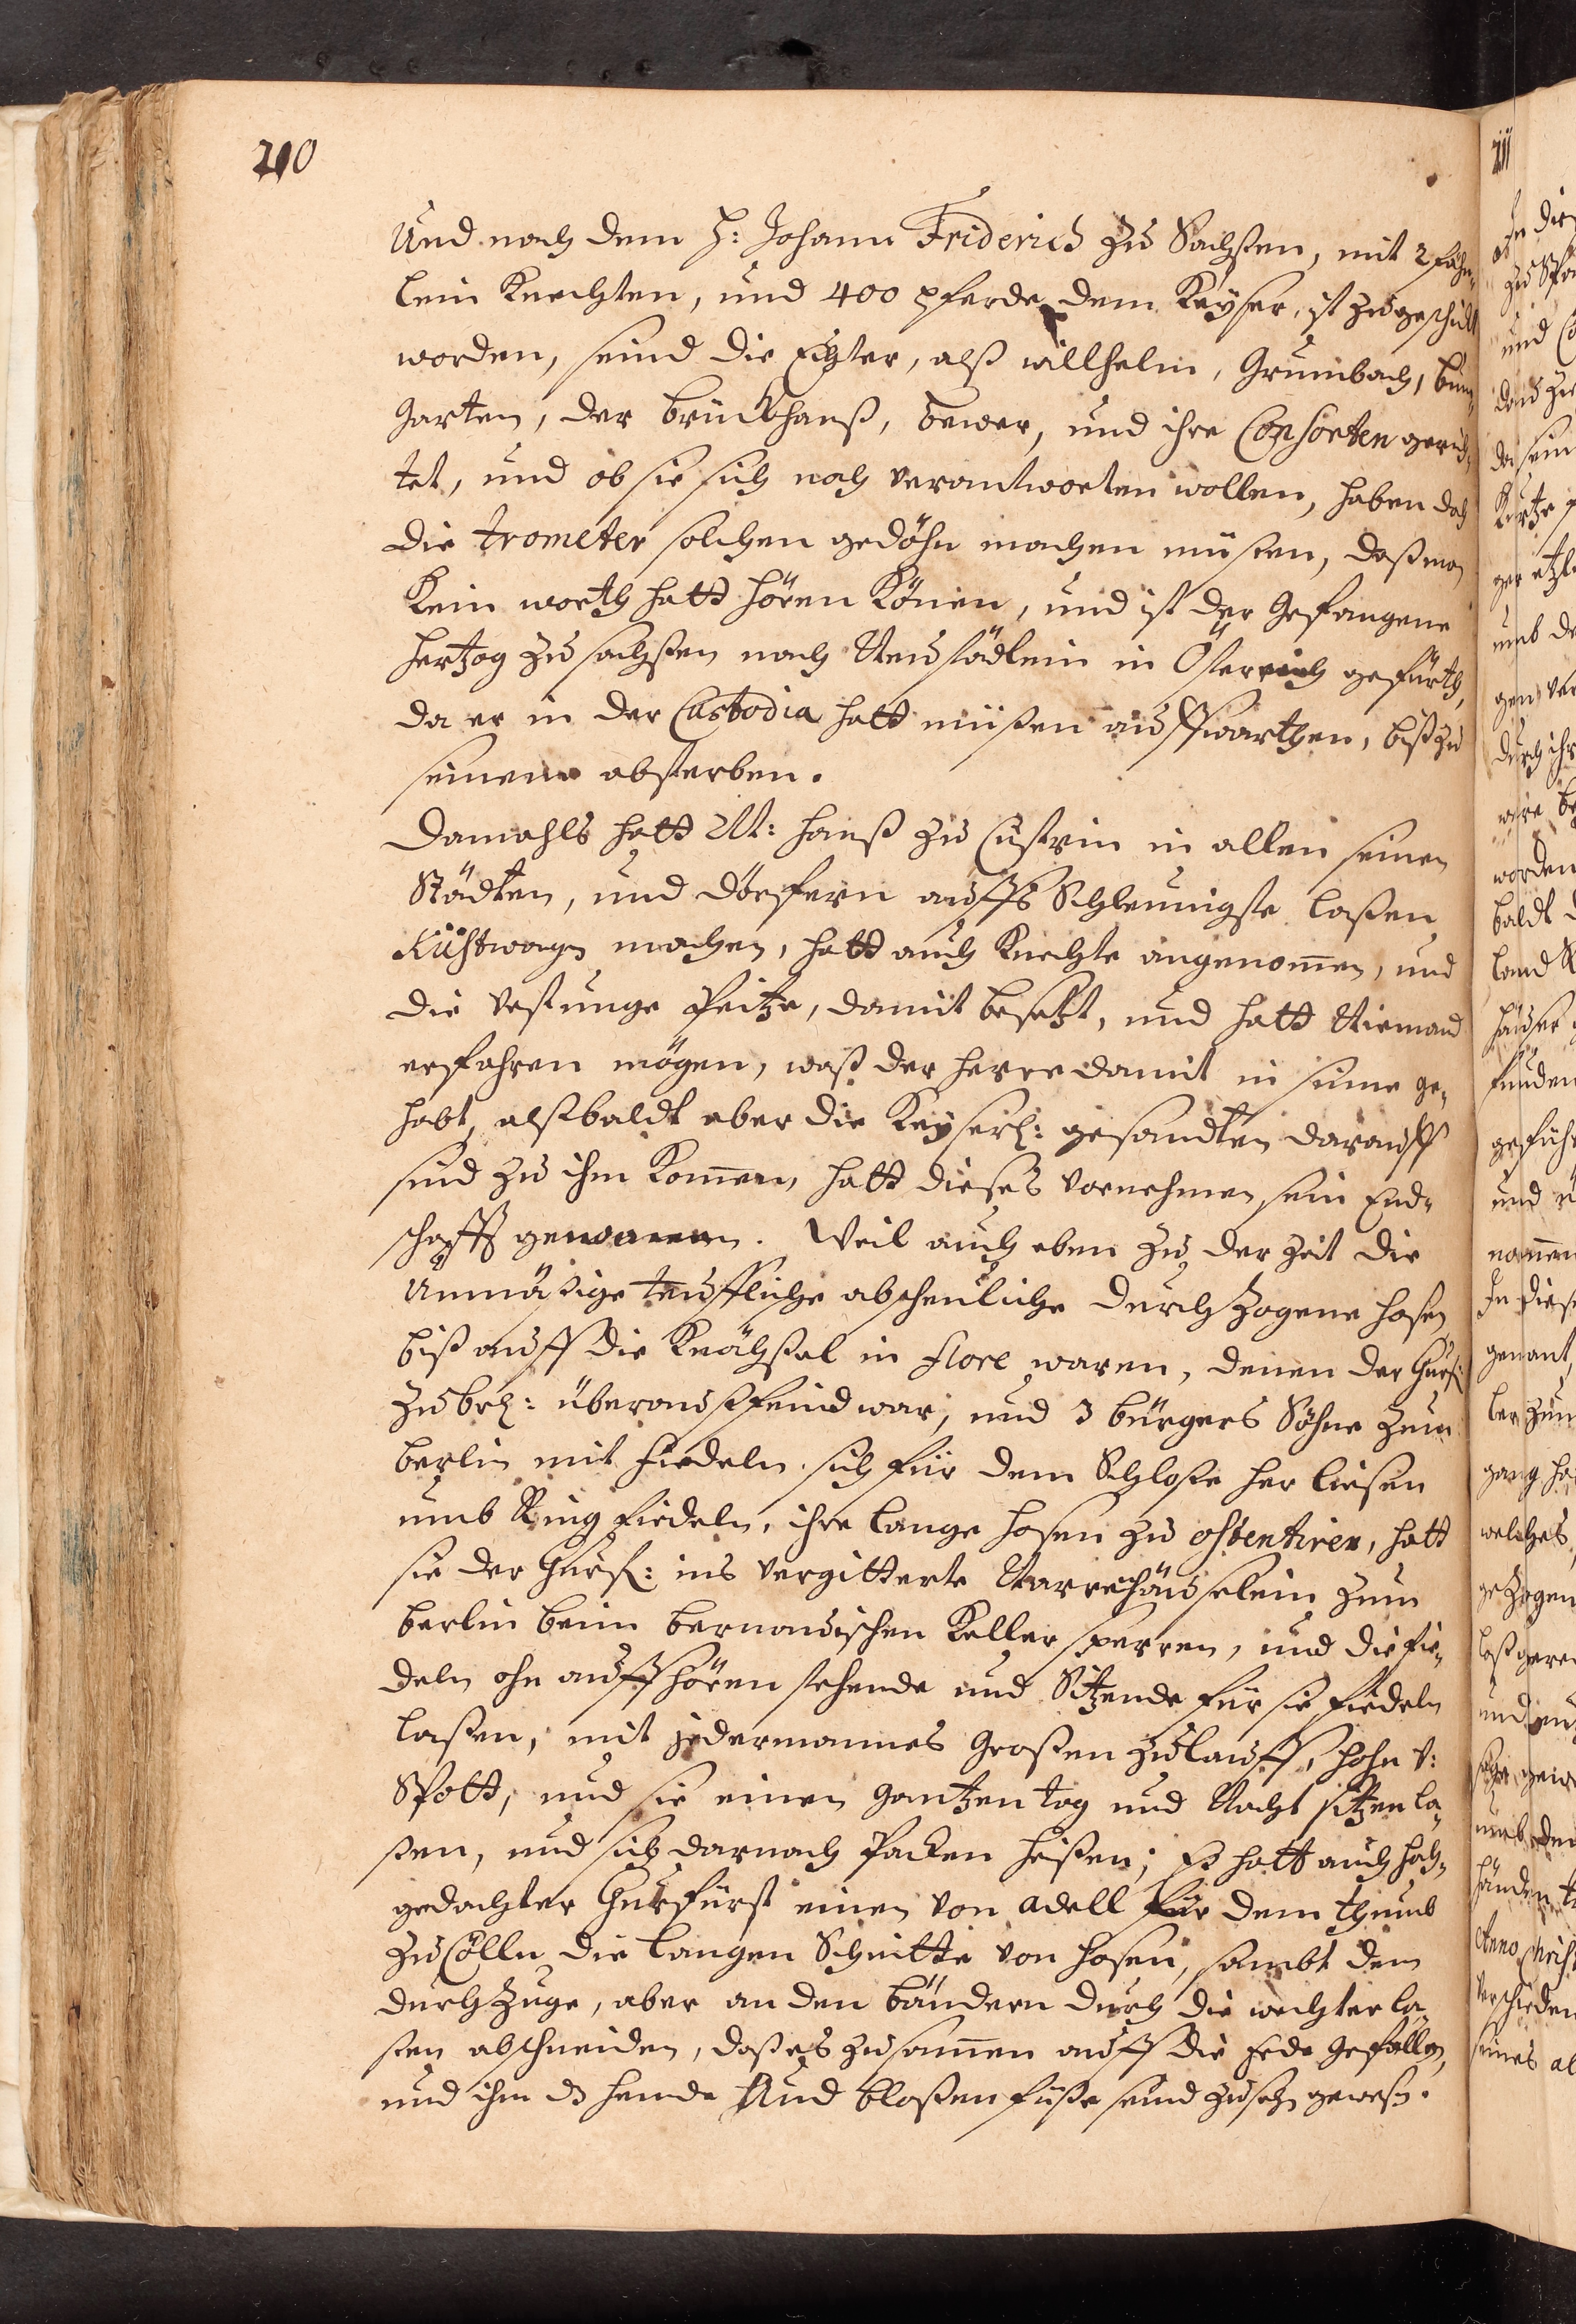 210
Und nach dem H: Johann Friderich zu Sachsßen, mit 2 fähn¬
lein Knechten, und 400 pferde dem Keyser, ist zugeschickt
worden, seind die Echter, alß willhelm, Grumbach, bum¬
garten, der brückhanß, bewer, und ihre Consorten gerich¬
tet, und ob sie sich noch verantworten wollen, haben doch
die trometer solchen gedöhn machen müsten, daß man
kein worth hatt hören könen, und ist der Gefangene
hertzog zu sachsßen nach Neustädlein in Österreich gefürth,
da er in der Custodia hatt müßen auffwarthen, biß zu
seinem absterben.
Damahls hatt M: Hanß zu Cüstrin in allen seinen
Städten, und dörfern auffs Schleunigste laßen
Rüstwagen machen, hatt auch Knechte angenomen, und
die vestunge Peitze, damit besetzt, und hatt Niemand
erfahren mögen, waß der herre damit in sinne ge¬
habt, alßbaldt aber die Keyserl: gesandten darauff
sind zu ihm komen, hatt dieses vornehmen sein End¬
schafft genommen. Weil auch eben zu der Zeit die
Unmäßige teuffliche abscheuliche durchzogene hosen
biß auff die Knöchßel in flore waren, denen der Churf:
zu brl: überauß feind war, und 3 bürgers Söhne zum
berlin mit fiedeln sich für dem Schloße her ließen
umb Ring fiedeln, ihre lange hosen zu ostentiren, hatt
sie der Churf: ins vergitterte Narrehäuselein zum
berlin beim bernauischen Keller sperren, und die fie¬
deln ohn auffhören stehende und Sitzende für sie fiedeln
laßen, mit jedermannes großen zulauff, hohn v:
Spott, und sie einen gantzen tag und Nacht sitzen la¬
ßen, und sich darnach packen heißen; Es hatt auch hoch¬
gedachter Churfürst einen von adell für dem thumb
zu Cölln die langen Schnitte von hosen, sambt dem
durchzuge, aber an den bändern durch die wechter la¬
ßen abschneiden, daß es zusammen auff die Erde gefallen,
und ihm ds hemde Und bloßen füße seind zusehen gewesen.